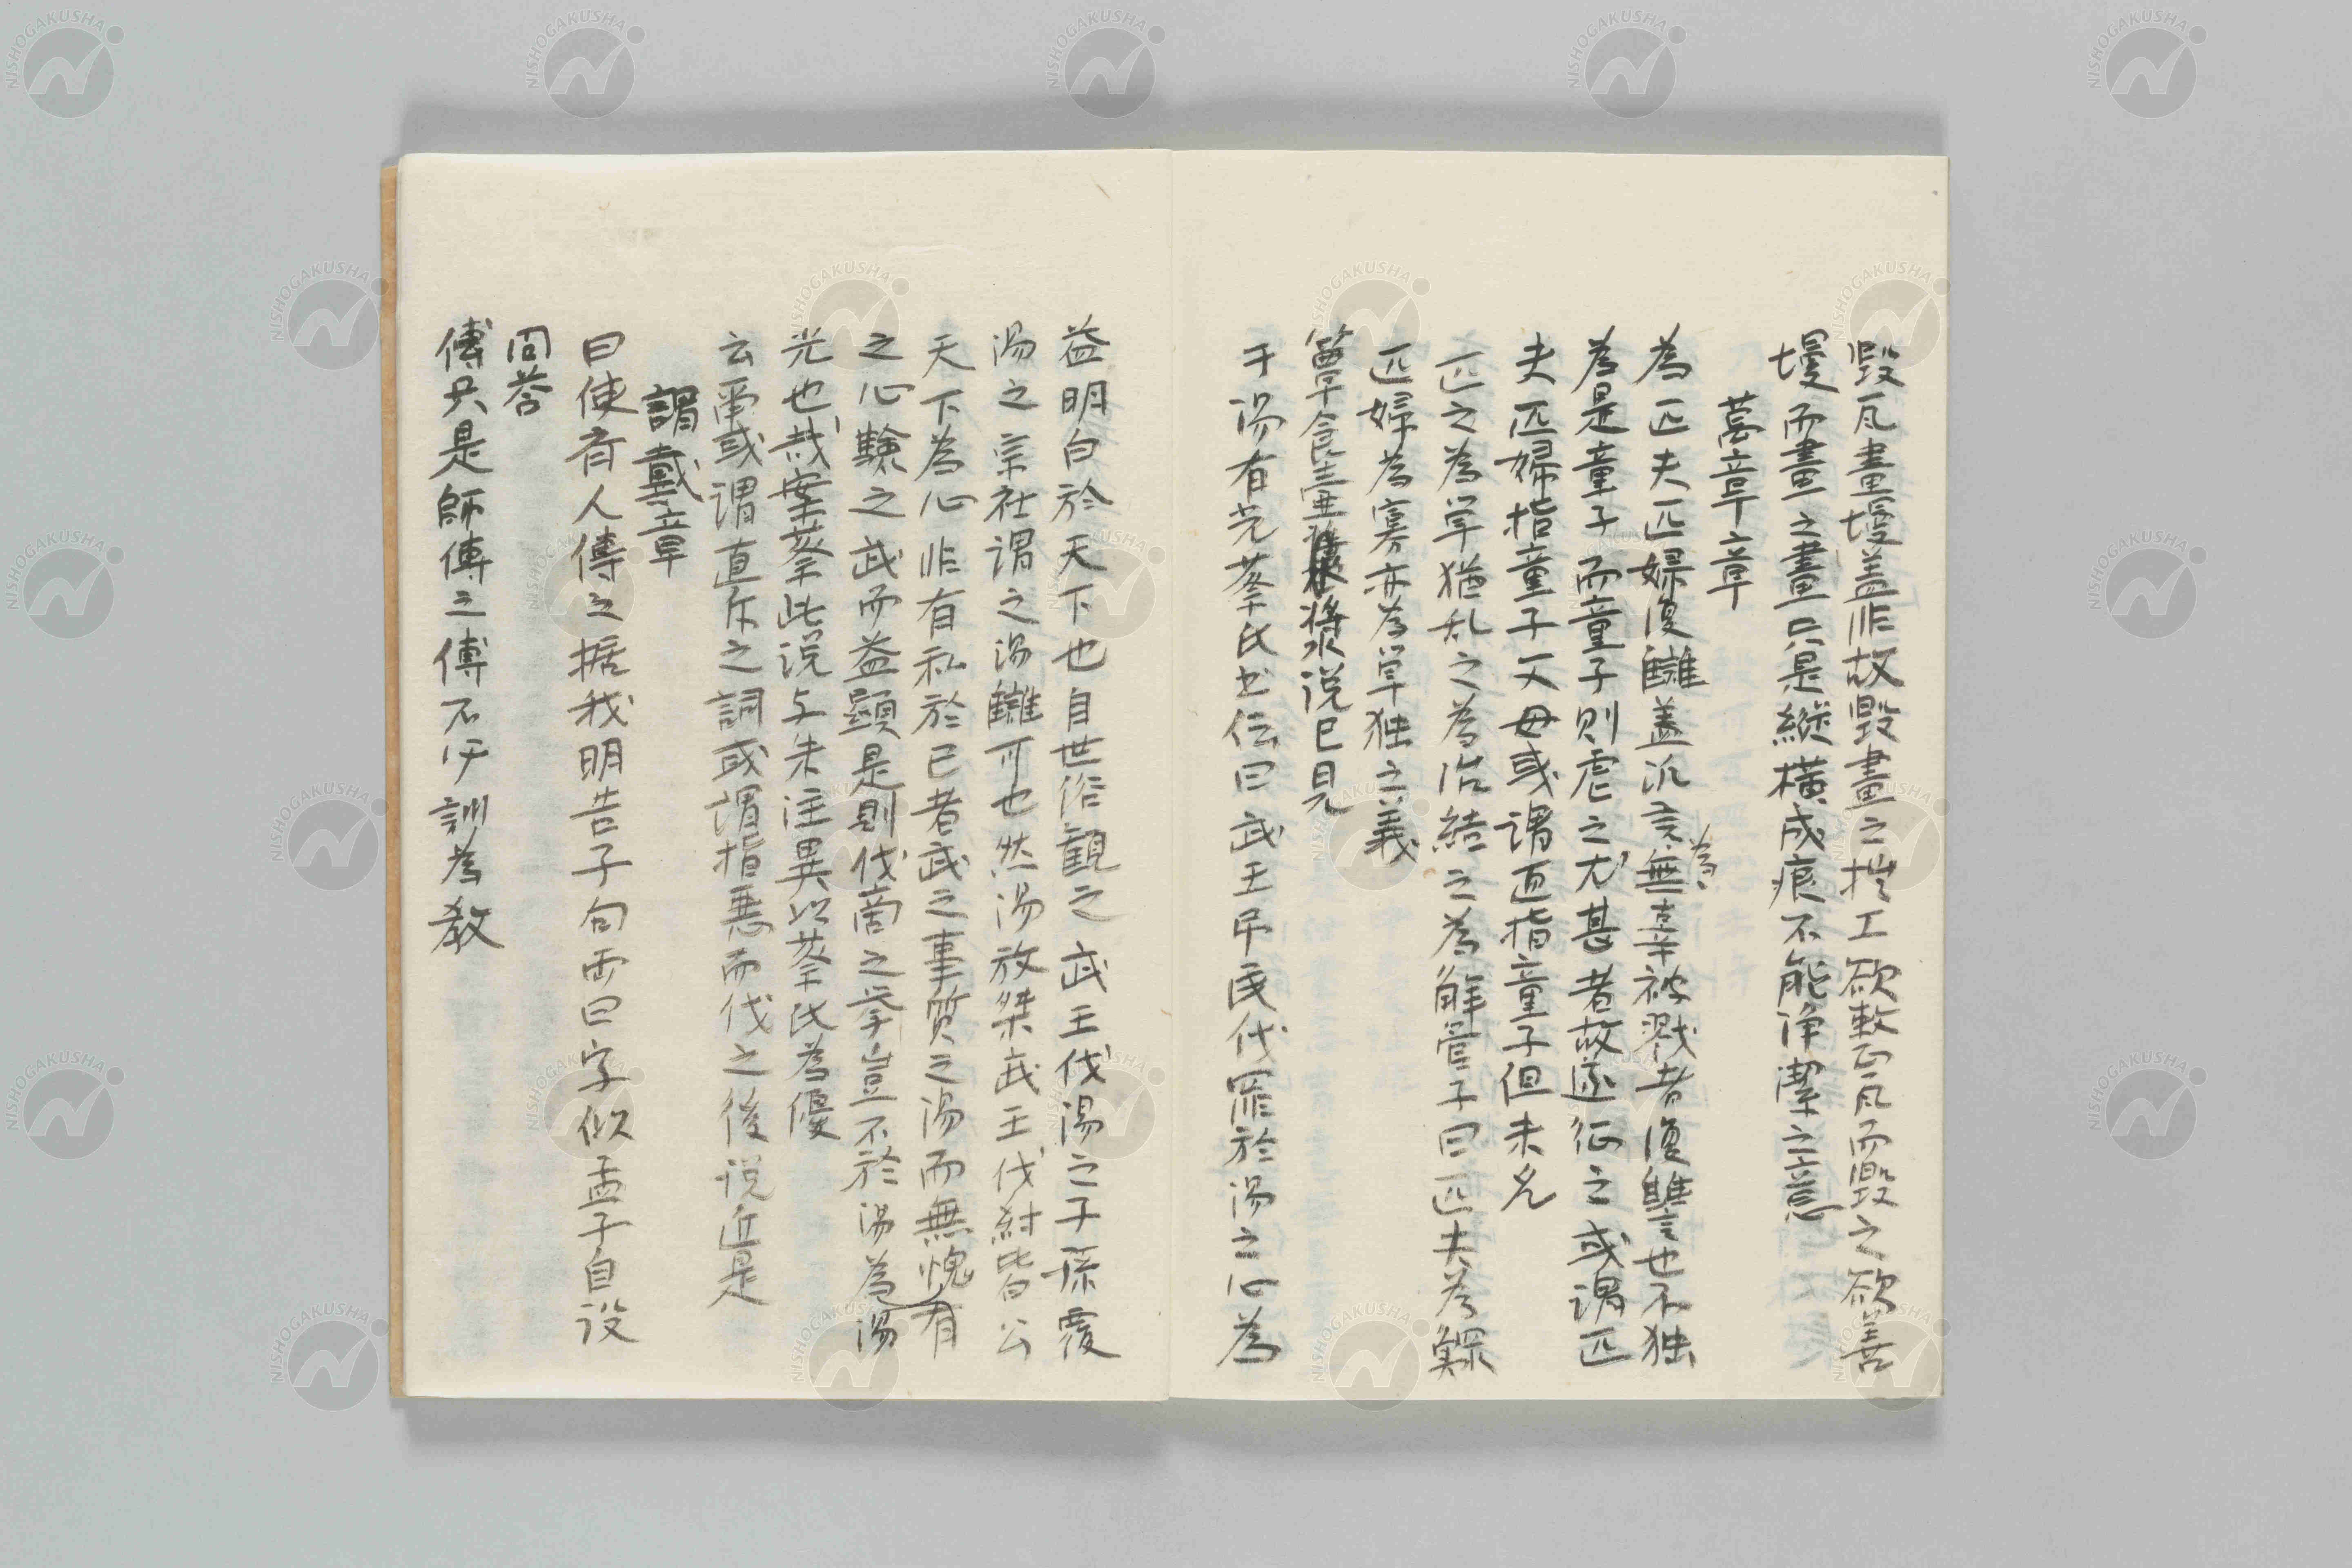 毀瓦畫墁盖非故毀畫之拙工欲敷瓦而毀之欲善
墁而畫之畫只是縱橫成痕不能净潔之意
萬章章
為匹夫匹婦復讎盖汎言為無辜被戮者復讎言也不独
為是童子而童子則虐之尤甚者故遂征之或謂匹
夫匹婦指童子父母或謂直指童子但未允
匹之為單猶乱之為治結之為解管子曰匹夫為鰥
匹婦為寡亦為單独之義
簞食壷漿説已見
于湯有光蔡氏书伝曰武王弔民伐罪於湯之心為
益明白於天下也自世俗觀之武王伐湯之子孫覆
湯之宗社谓之湯讎可也然湯放桀武王伐紂皆公
天下為心非有私於己者武之事質之湯而無愧有
之心驗之武而益顯是則伐商之举豈不於湯為湯
光也哉案蔡此说与朱注異以蔡氏為優
云爾或谓直斥之詞或謂指惡而伐之後说近是
謂戴章
曰使齊人傅之据我明告子句而曰字似孟子自设
问荅
傅只是師傅之傅不必訓為教